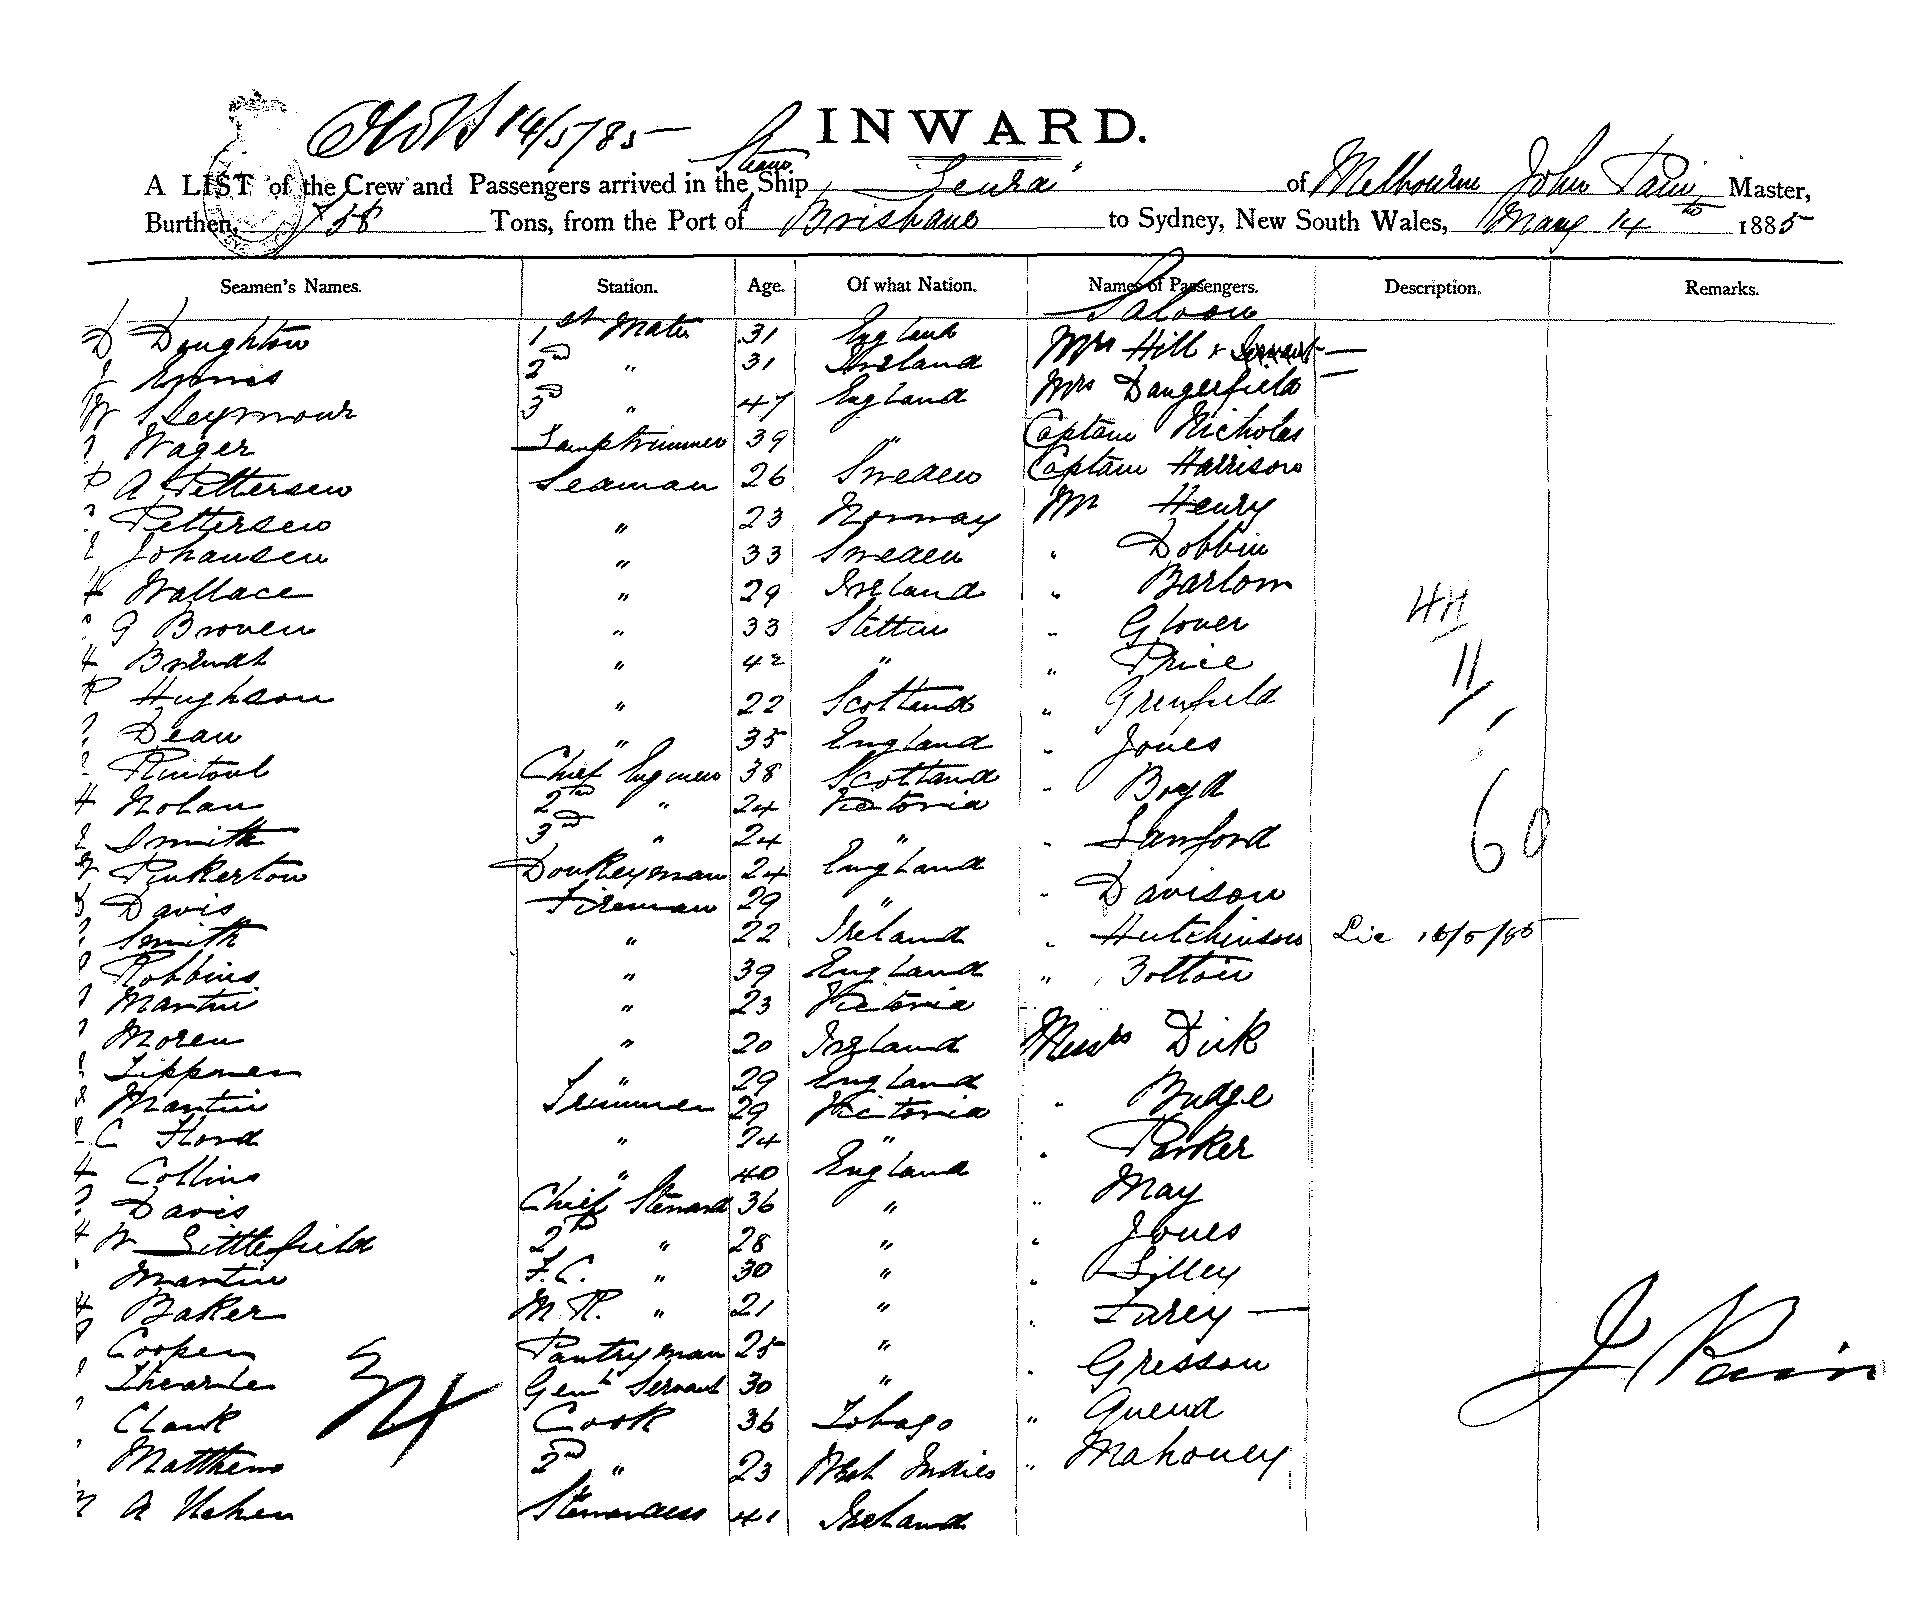 14/5/85
INWARD.
A LIST of the Crew and Passengers arrived in the Steam Ship "Leura" of Melbourne John Pain Master,
Burthen, 758 Tons, from the Port of Brisbane to Sydney, New South Wales, May 14th 1885
Seamen's Names. Station. Age. Of what Nation. Names of Passengers. Description. Remarks.
Saloon
D Doughton 1st Mate 31 England Mrs Hill & Servant —
Ennis 2nd " 31 Ireland Mrs Dangerfield —
W Seymour 3rd " 47 England Captain Nicholas
Wager Lamptrimmer 39 " Captain Harrison
P A Pettersen Seaman 26 Sweden Mr Henry
Pettersen " 23 Norway " Dobbin
Johansen " 33 Sweden " Barlow
H Wallace " 29 Ireland " Glover
G Broven " 33 Stettin " Price
H Brendt " 42 " " Grenfield
R Hughson " 22 Scotland " Jones
Dean " 35 England " Boyd
Rintoul Chief Engineer 38 Scotland " Lamford
H Nolan 2nd " 24 Victoria " Davison
Smith 3rd " 24 " " Hutchinson Lic 15/5/85
Pinkerton Donkeyman 24 England " Bolton
D Davis Fireman 29 " Messrs Dick
Smith " 22 Ireland " Budge
Robbins " 39 England " Parker
Martin " 23 Victoria " May
Moren " 20 England " Jones
Lippmen " 29 England " Lilley
Martin Trimmer 29 Victoria " Farey —
C Flord " 24 " " Gresson
H Collins " 40 England " Quend
Davis Chief Steward 36 " " Mahoney
H W Littlefield 2nd " 28 "
Martin F.C. " 30 "
H Baker M.R. " 21 "
Cooper Pantryman 25 "
Thearle Genl Servant 30 "
Clark Cook 36 Tobago
Matthews 2nd " 23 West Indies
M A Usher Stewardess 41 Ireland
34
44
11
1
60
J Pain